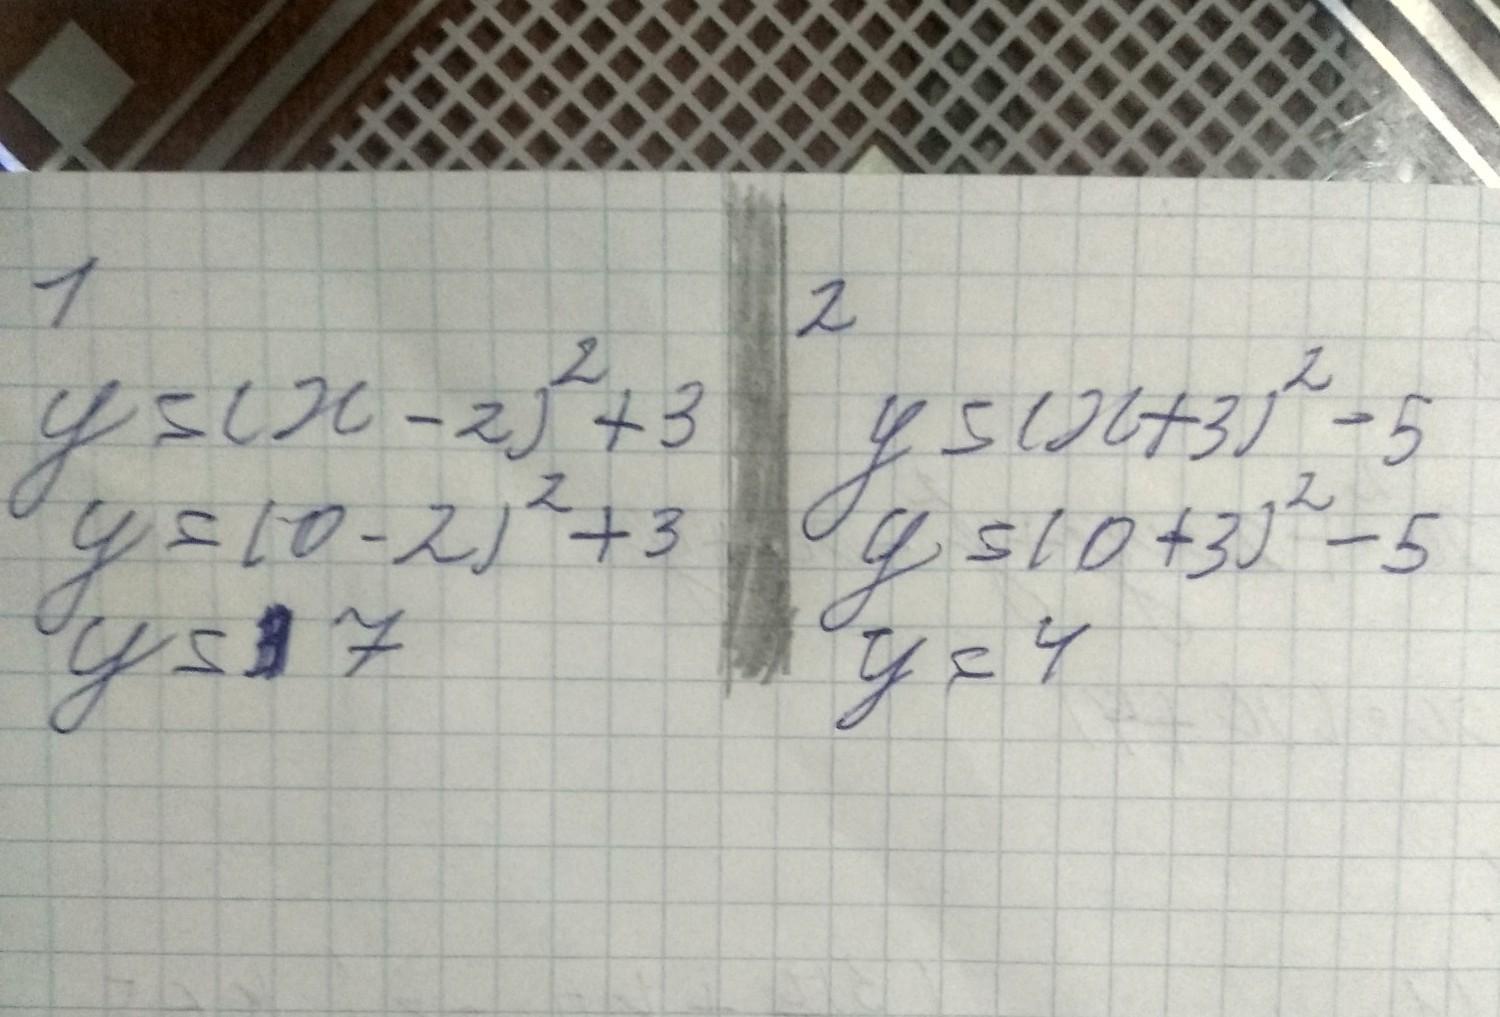 1
y = (x - 2)² + 3
y = (0 - 2)² + 3
y = 7
2
y = (x + 3)² - 5
y = (0 + 3)² - 5
y = 4